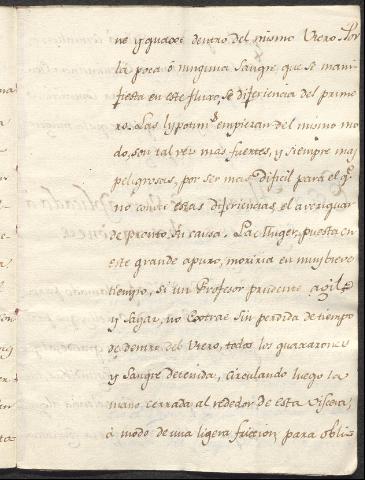 ne y guaxe dentro del mismo Utero. Por
la poca ó ninguna Sangre que se mani-
fiesta en este fluxo, se diferencia del prime
ro. Las lypotim.s empiezan del mismo mo
do, son tal vez mas fuertes, y siempre mas
peligrosas, por ser mas dificil para el q.e
no conoce estas diferiencias, el averiguar
de pronto su causa. La Muger, puesta en
este grande apuro, moriria en muy breve
tiempo, si un Profesor prudente agil
y Sagaz, no Extrae sin perdida de tiempo
de dentro del Utero, todos los quaxarones
y Sangre detenida, circulando luego la
mano cerrada al rededor de esta Viscera,
á modo de una ligera friccion, para obli